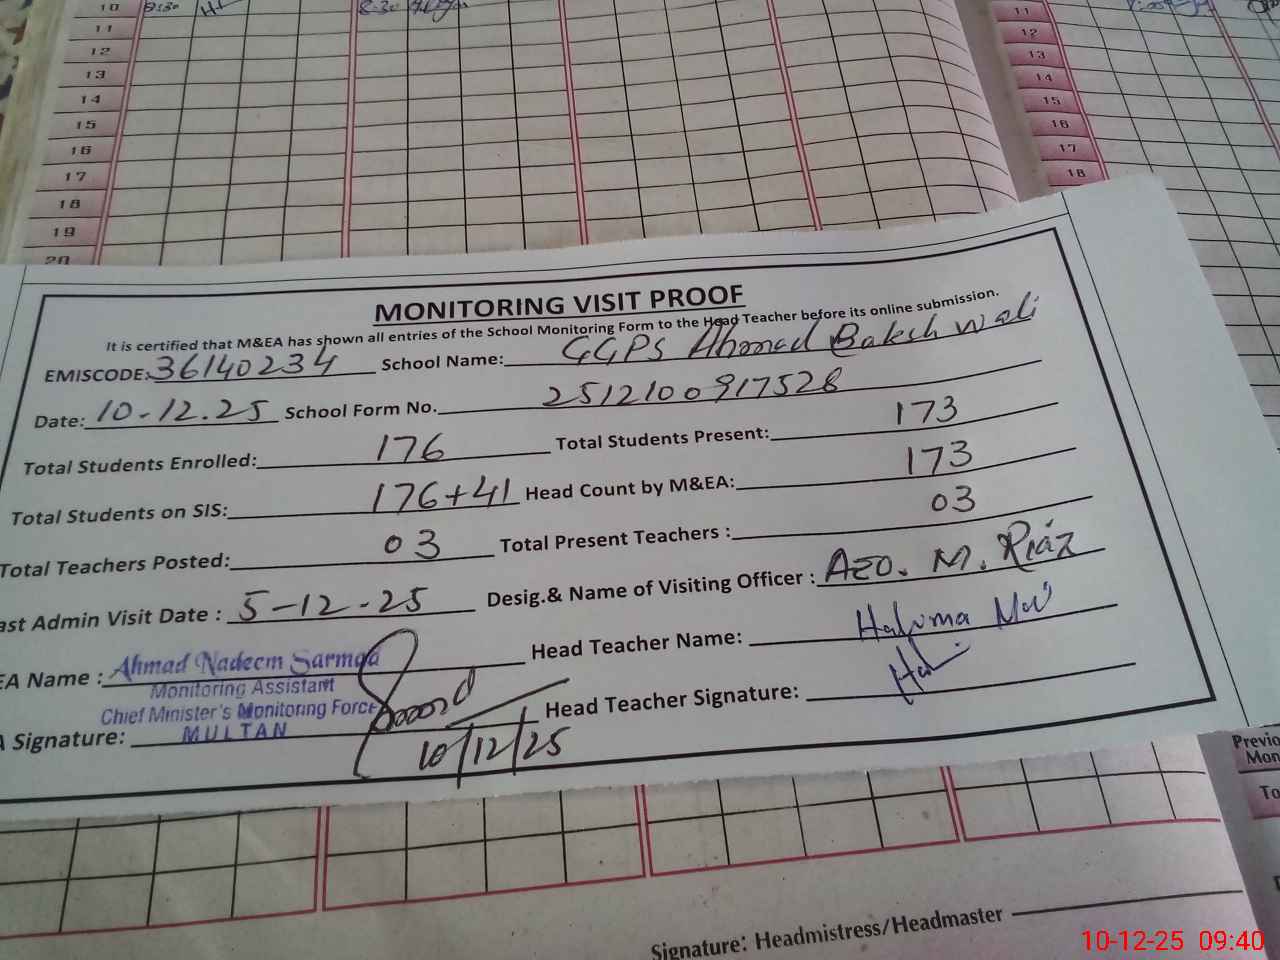 10 8:30 8:30
11
12
13
14
15
16
17
18
19
20
11
12
13
14
15
16
17
18
MONITORING VISIT PROOF
It is certified that M&EA has shown all entries of the School Monitoring Form to the Head Teacher before its online submission.
EMISCODE: 36140234 School Name: GGPS Ahmad Baksh Wali
Date: 10-12.25 School Form No. 2512100917528
Total Students Enrolled: 176 Total Students Present: 173
Total Students on SIS: 176+41 Head Count by M&EA: 173
Total Teachers Posted: 03 Total Present Teachers : 03
ast Admin Visit Date : 5-12-25 Desig.& Name of Visiting Officer : AEO. M. Riaz
EA Name : Ahmad Nadeem Sarmad Head Teacher Name: Halima
Monitoring Assistant
Chief Minister's Monitoring Force
MULTAN
A Signature: Head Teacher Signature:
10/12/25
Previo
Mon
To
Signature: Headmistress/Headmaster
10-12-25 09:40